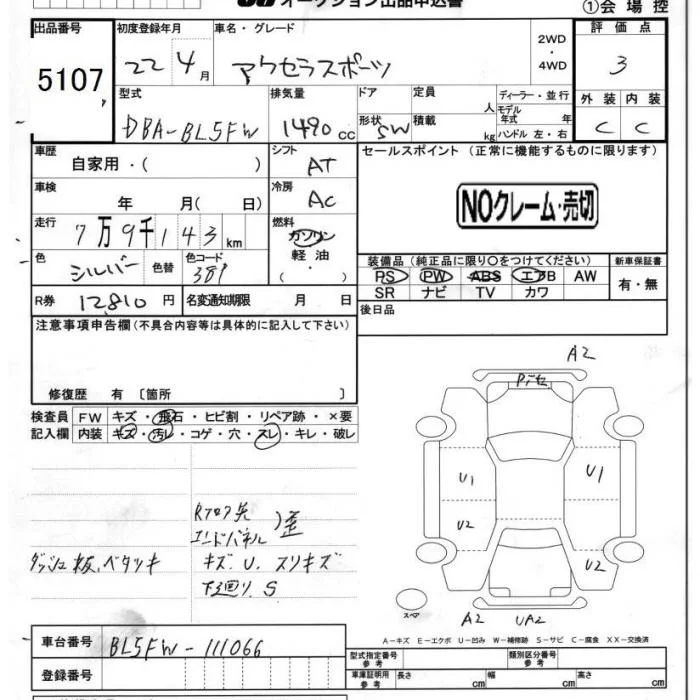 オークション出品申込書
①会場控
出品番号 5107
初度登録年月 22 4月
車名・グレード アクセラスポーツ
2WD・4WD
評価点 3
型式 DBA-BL5FW
排気量 1490cc
ドア形状 SW
定員 人
積載 kg
ディーラー・並行
モデル年式 年
ハンドル 左・右
外装 内装
C C
車歴 自家用・( )
シフト AT
セールスポイント (正常に機能するものに限ります)
車検 年 月( 日)
冷房 AC
NOクレーム・売切
走行 7万9千143km
燃料 ガソリン 軽油 ( ・ )
色 シルバー 色替
色コード 38P
装備品 (純正品に限り○をつけてください)
新車保証書
PS PW ABS エアB AW
SR ナビ TV カワ
有・無
R券 12,810円
名変通知期限 月 日
後日品
注意事項申告欄 (不具合内容等は具体的に記入して下さい)
修復歴 有 〔箇所 〕
検査員記入欄
FW キズ・飛石・ヒビ割・リペア跡・×要
内装 キズ・汚レ・コゲ・穴・スレ・キレ・破レ
A2
U1 U1
U2
U2
A2 UA2
スペア
Rフロア先
エンドパネル )歪
ダッシュ板、ベタツキ
キズ、U、スリキズ
下廻り、S
A−キズ E−エクボ U−凹み W−補修跡 S−サビ C−腐食 XX−交換済
車台番号 BL5FW-111066
型式指定番号 参考
類別区分番号 参考
登録番号
車庫証明用 参考
長さ cm 幅 cm 高さ cm